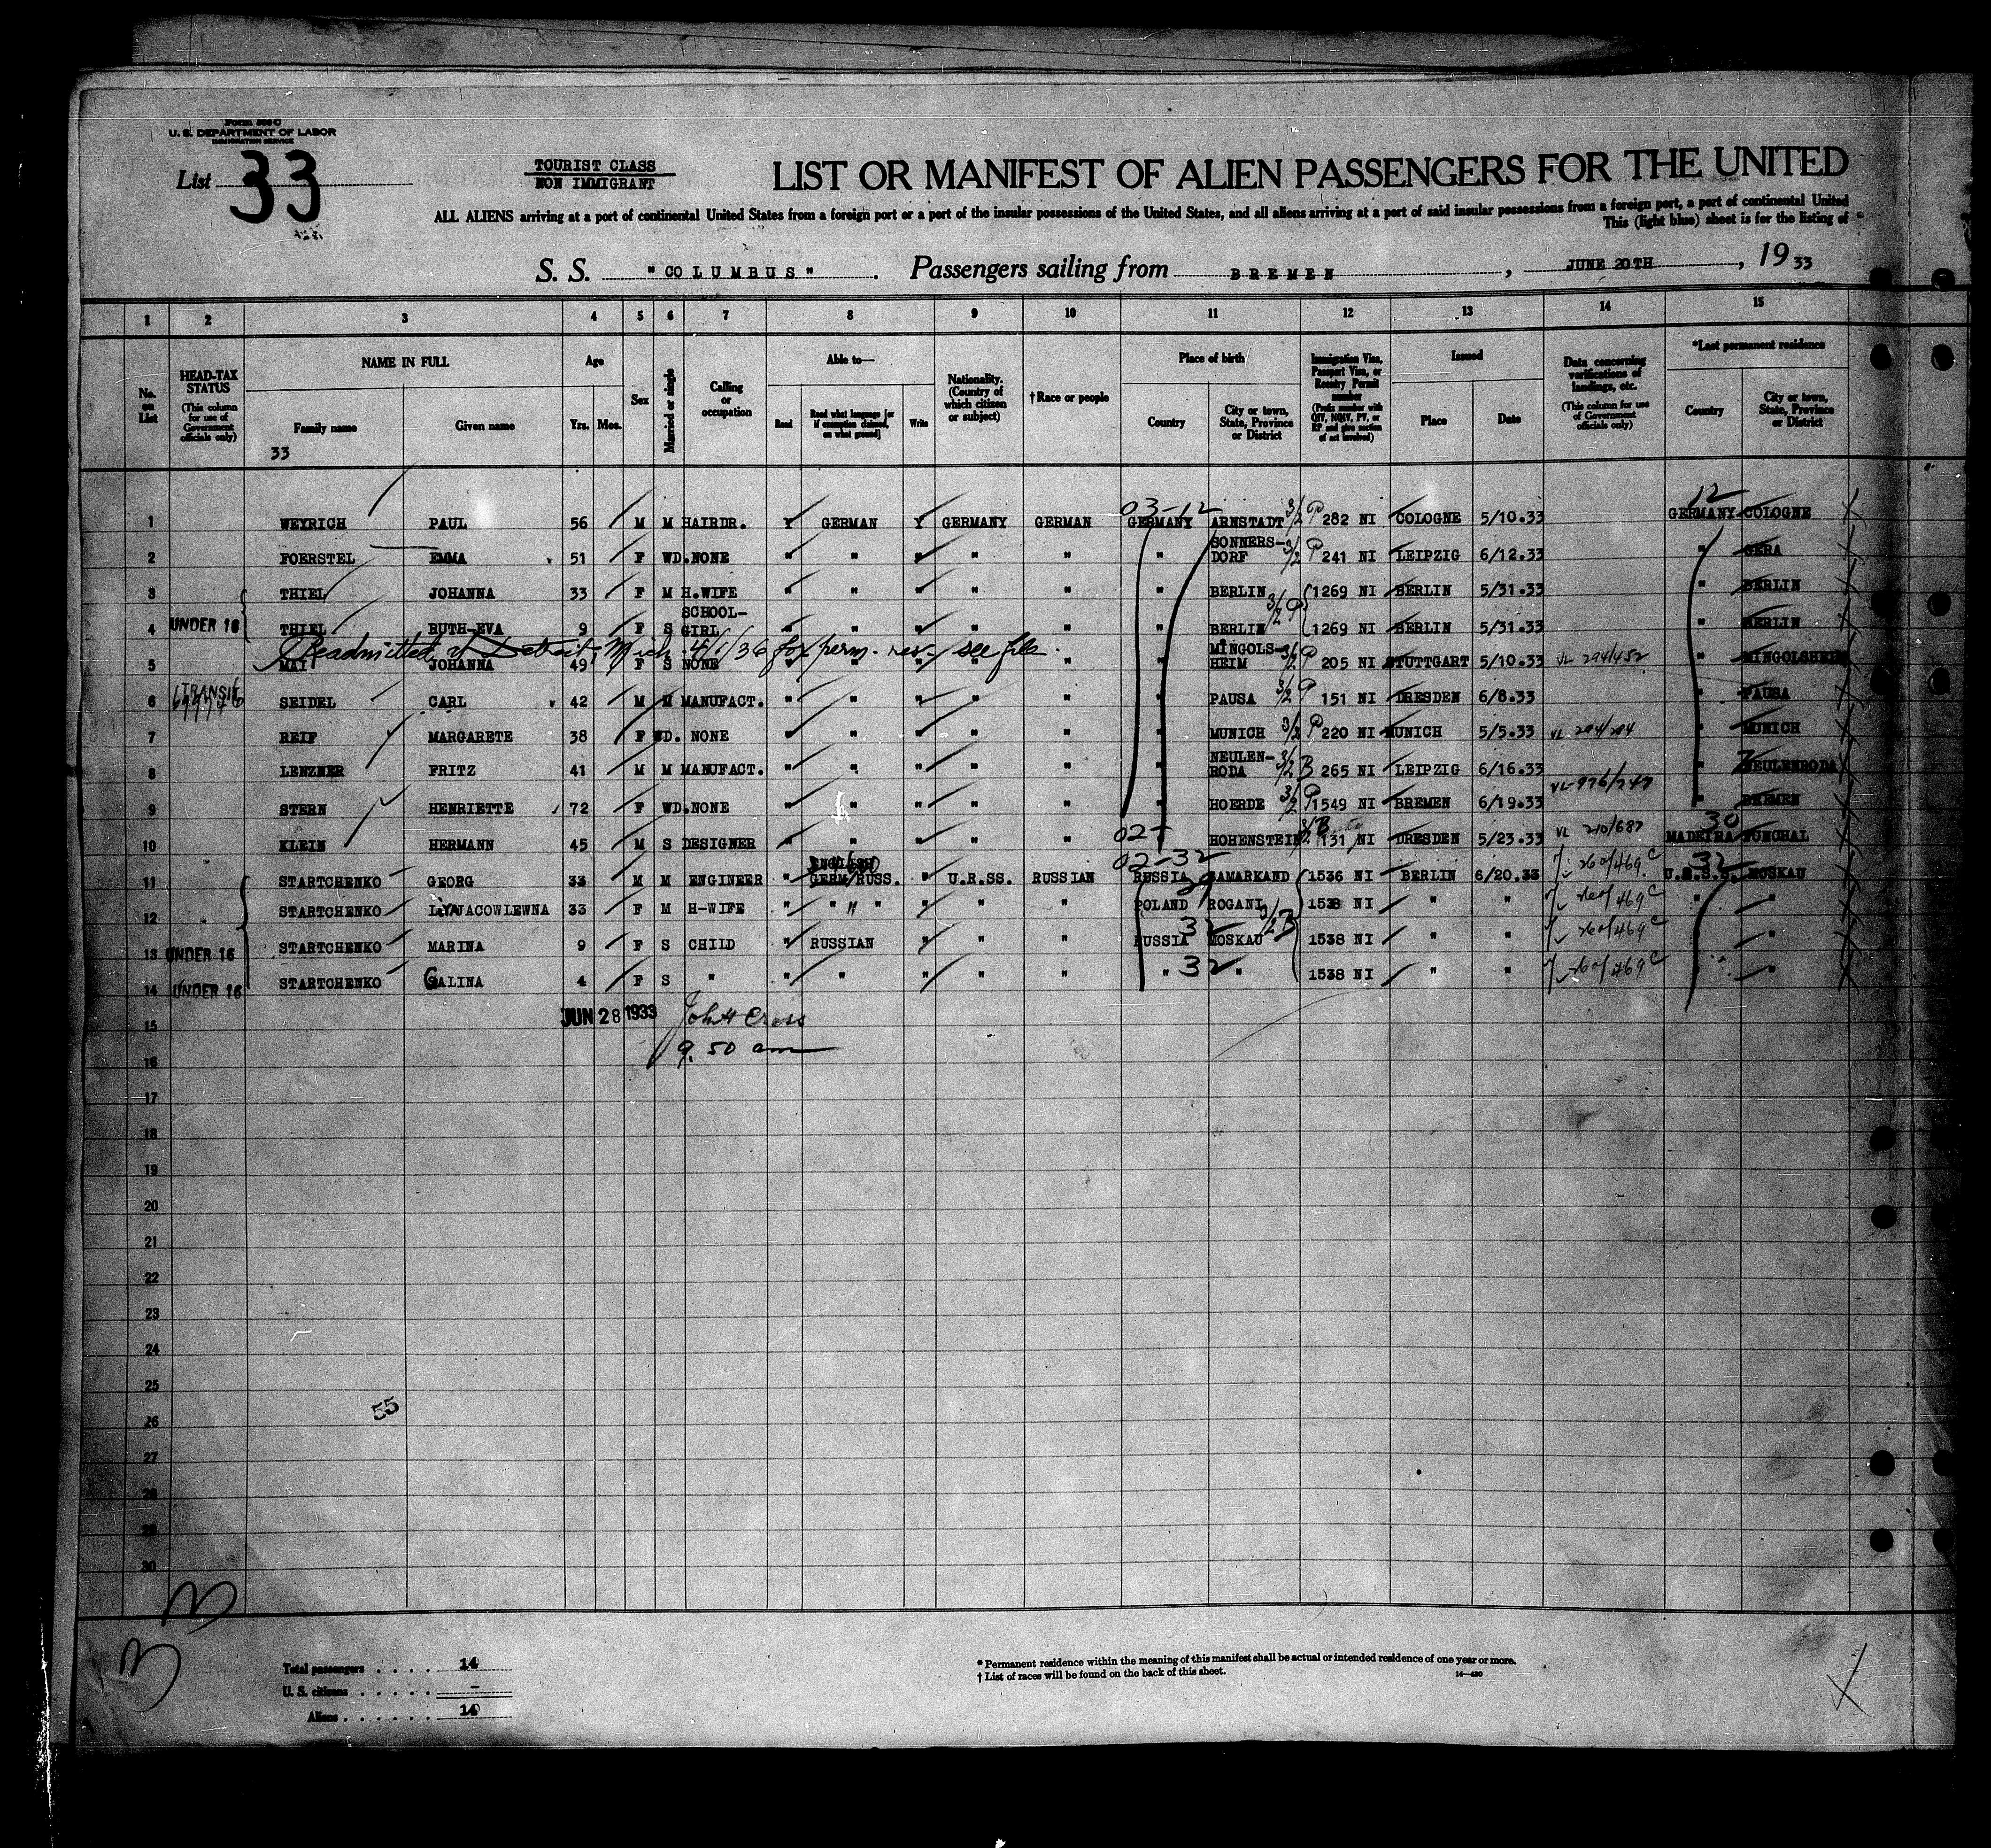 Form 500 C
U. S. DEPARTMENT OF LABOR
IMMIGRATION SERVICE
List 33
TOURIST CLASS
NON IMMIGRANT
LIST OR MANIFEST OF ALIEN PASSENGERS FOR THE UNITED
ALL ALIENS arriving at a port of continental United States from a foreign port or a port of the insular possessions of the United States, and all aliens arriving at a port of said insular possessions from a foreign port, a port of continental United
This (light blue) sheet is for the listing of
S. S. "COLUMBUS". Passengers sailing from BREMEN, JUNE 20TH, 19 33
1 2 3 4 5 6 7 8 9 10 11 12 13 14 15
No. on List
HEAD-TAX STATUS (This column for use of Government officials only)
NAME IN FULL Family name Given name
33
Age Yrs. Mos.
Sex
Married or single
Calling or occupation
Able to— Read Read what language [or if exemption claimed, on what ground] Write
Nationality. (Country of which citizen or subject)
†Race or people
Place of birth Country City or town, State, Province or District
Immigration Visa, Passport Visa, or Reentry Permit number (Prefix number with QIV, NQIV, PV, or RP and give section of act involved)
Issued Place Date
Data concerning verifications of landings, etc. (This column for use of Government officials only)
*Last permanent residence Country City or town, State, Province or District
03-12 12
1 WEYRICH PAUL 56 M M HAIRDR. Y GERMAN Y GERMANY GERMAN GERMANY ARNSTADT 3/2 P 282 NI COLOGNE 5/10.33 GERMANY COLOGNE
2 FOERSTEL EMMA 51 F WD. NONE " " " " " " SONNERS-DORF 3/2 P 241 NI LEIPZIG 6/12.33 " GERA
3 THIEL JOHANNA 33 F M H.WIFE " " " " " " BERLIN 1269 NI BERLIN 5/31.33 " BERLIN
4 UNDER 16 THIEL RUTH-EVA 9 F S SCHOOL-GIRL " " " " " " BERLIN 3/2 P 1269 NI BERLIN 5/31.33 " BERLIN
Readmitted at Detroit, Mich. 4/1/36 for perm. res. see file.
5 MAI JOHANNA 49 F S NONE " " " " " " MINGOLS-HEIM 3/2 P 205 NI STUTTGART 5/10.33 VL 294/452 " MINGOLSHEIM
6 TRANSIT SEIDEL CARL 42 M M MANUFACT. " " " " " " PAUSA 3/2 P 151 NI DRESDEN 6/8.33 " PAUSA
7 REIF MARGARETE 38 F WD. NONE " " " " " " MUNICH 3/2 P 220 NI MUNICH 5/5.33 VL 294/294 " MUNICH
8 LENZNER FRITZ 41 M M MANUFACT. " " " " " " NEULEN-RODA 3/2 B 265 NI LEIPZIG 6/16.33 " ZEULENRODA
9 STERN HENRIETTE 72 F WD. NONE " " " " " " HOERDE 3/2 P 1549 NI BREMEN 6/19.33 VL 976/247 " BREMEN
02- 30
10 KLEIN HERMANN 45 M S DESIGNER " " " " " " HOHENSTEIN 3/2 B 131 NI DRESDEN 5/23.33 VL 210/687 MADEIRA FUNCHAL
ENGLISH 02-32 32
11 STARTCHENKO GEORG 33 M M ENGINEER " GERM/RUSS. " U.R.SS. RUSSIAN RUSSIA SAMARKAND 1536 NI BERLIN 6/20.33 260/469 C U.S.S.R. MOSKAU
12 STARTCHENKO LYNJACOWLEWNA 33 F M H-WIFE " " " " " " POLAND ROGANI 1538 NI " " 260/469 C " "
13 UNDER 16 STARTCHENKO MARINA 9 F S CHILD " RUSSIAN " " " RUSSIA 32 MOSKAU 3/2 B 1538 NI " " 260/469 C " "
14 UNDER 16 STARTCHENKO GALINA 4 F S " " " " " " " 32 " 1538 NI " " 260/469 C " "
JUN 28 1933 John H Cross
9.50 am
15
16
17
18
19
20
21
22
23
24
25
55
26
27
28
29
30
Total passengers . . . . 14
U. S. citizens . . . . . –
Aliens . . . . . . 14
* Permanent residence within the meaning of this manifest shall be actual or intended residence of one year or more.
† List of races will be found on the back of this sheet.
14—430